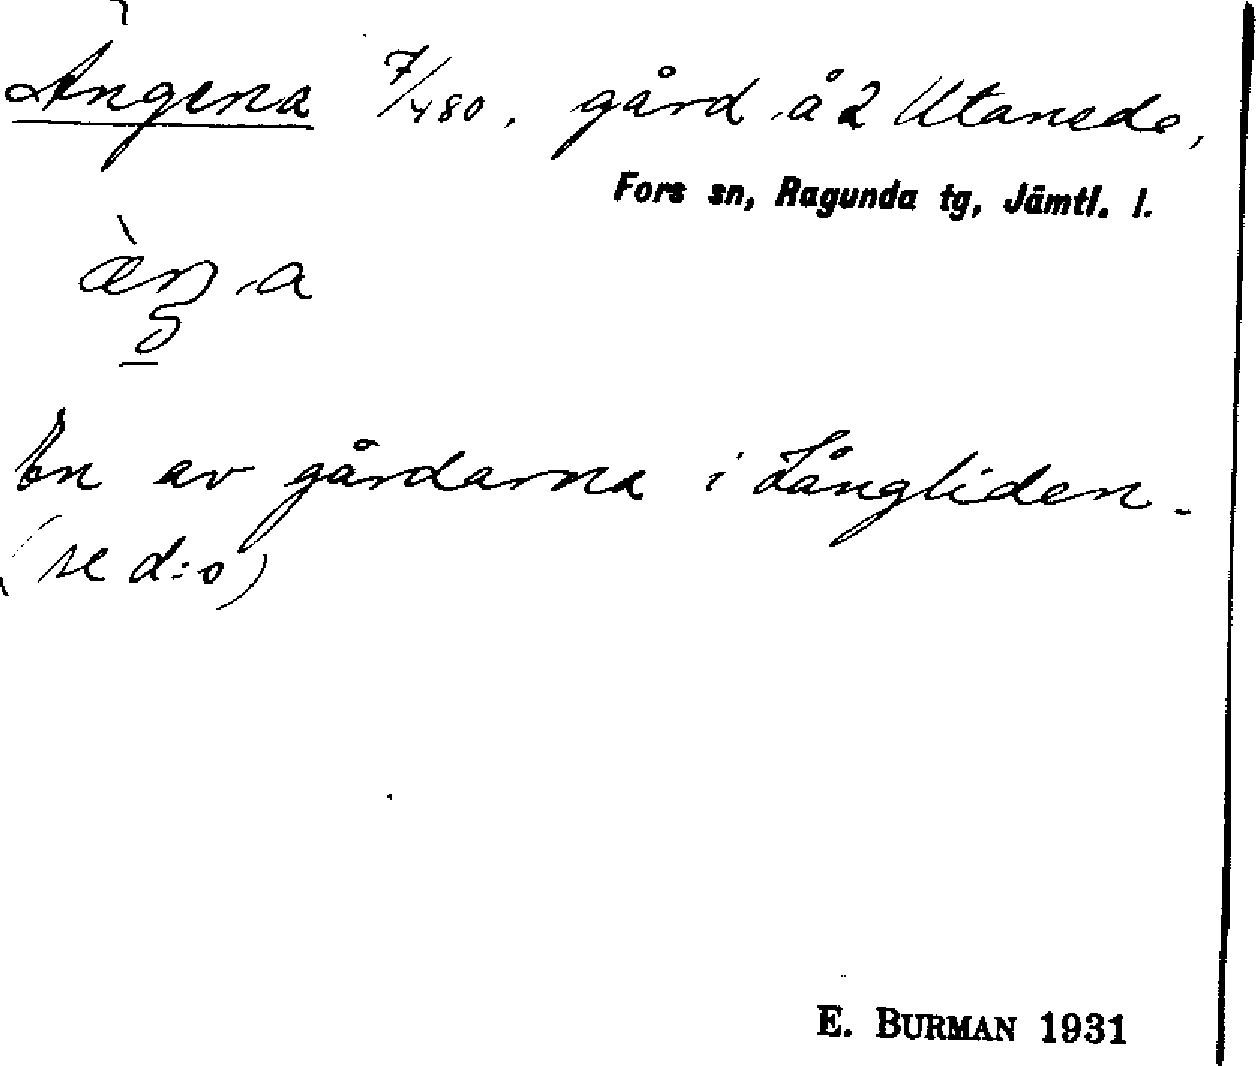 Ängena 7/480, gård å 2 Utanede,
Fors sn, Ragunda tg, Jämtl. l.
En av gårdarna i Långliden.
(se d:o)
E. BURMAN 1931